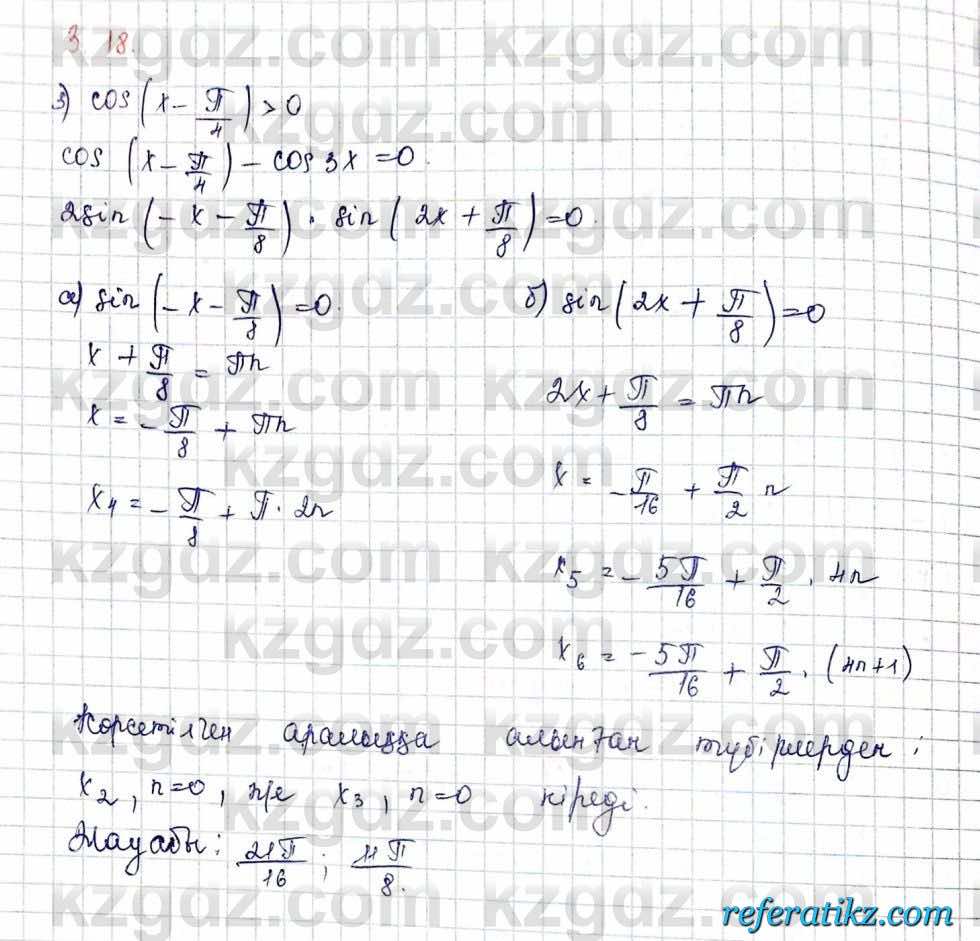 3 18.
3) cos(x - π/4) > 0
cos(x - π/4) - cos 3x = 0.
2sin(-x - π/8) · sin(2x + π/8) = 0.
а) sin(-x - π/8) = 0.
x + π/8 = πn
x = -π/8 + πn
x₄ = -π/8 + π · 2n
б) sin(2x + π/8) = 0
2x + π/8 = πn
x = -π/16 + π/2 n
x₅ = -5π/16 + π/2 · 4n
x₆ = -5π/16 + π/2 · (4n+1)
Көрсетілген аралыққа алынған түбірлерден:
x₂, n=0, әіе x₃, n=0 кіреді.
Жауабы: 21π/16; 11π/8.
kzgdz.com
referatikz.com